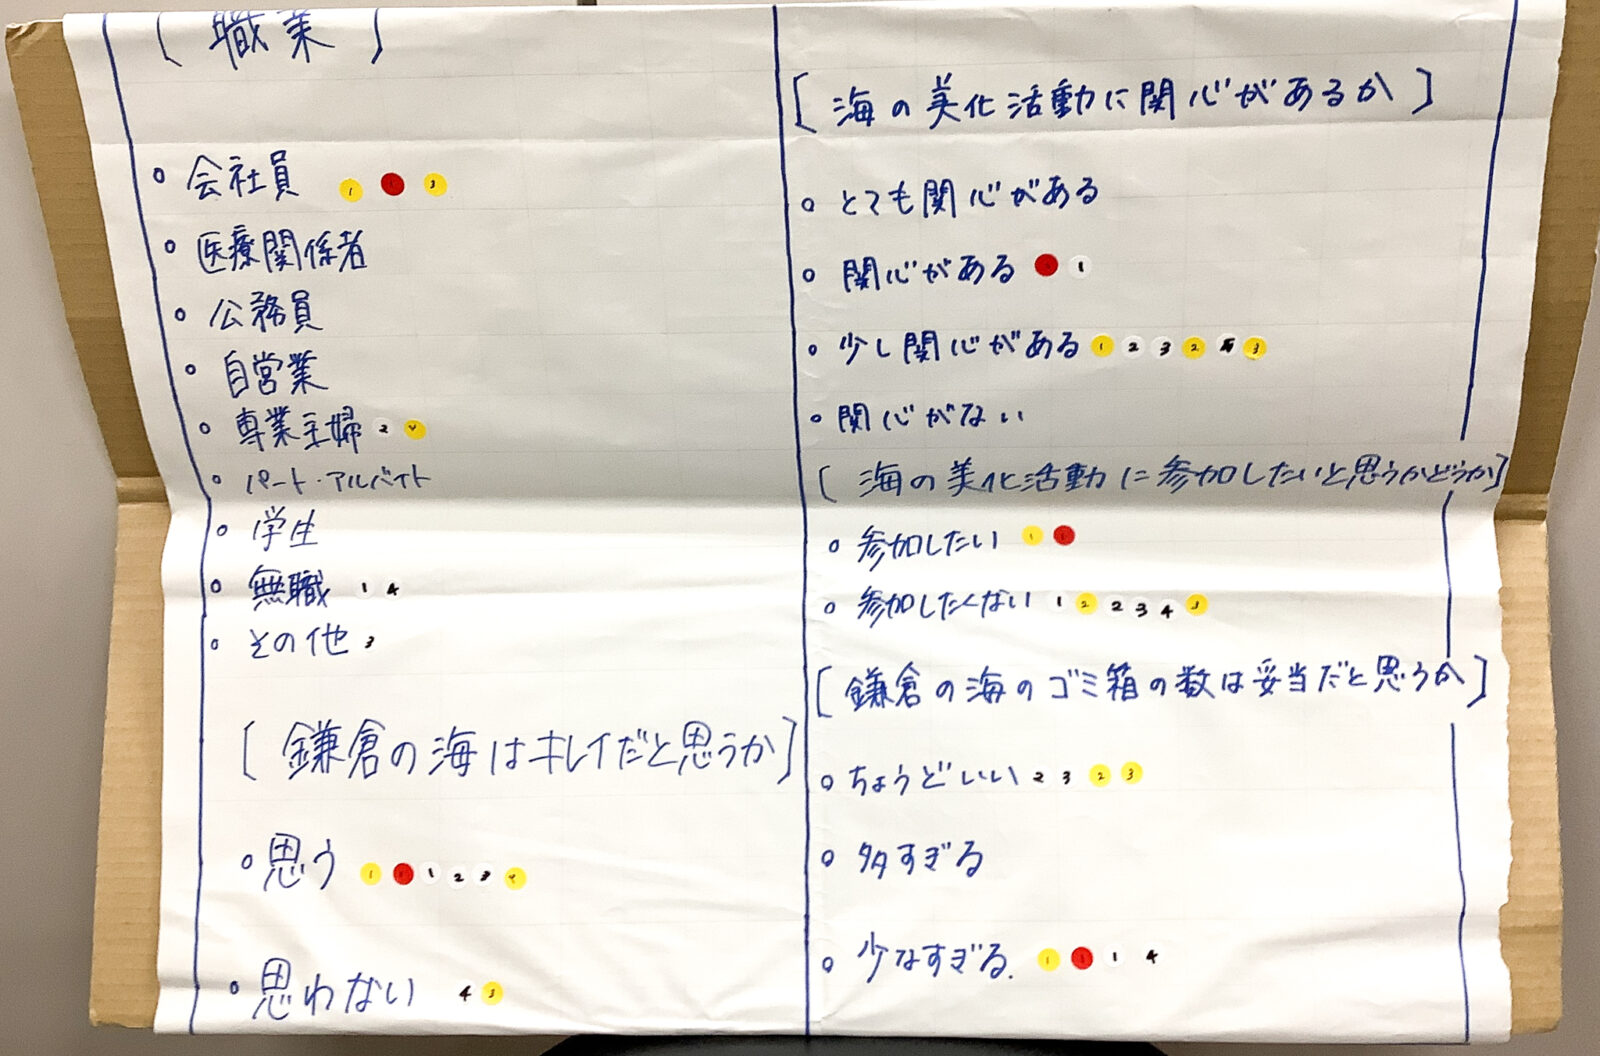 [職業]
○ 会社員 1 3
○ 医療関係者
○ 公務員
○ 自営業
○ 専業主婦 2
○ パート・アルバイト
○ 学生
○ 無職 1 4
○ その他 3
[鎌倉の海はキレイだと思うか]
○ 思う 1 1 1 2 3
○ 思わない 4 3
[海の美化活動に関心があるか]
○ とても関心がある
○ 関心がある 1
○ 少し関心がある 1 2 3 2 3
○ 関心がない
[海の美化活動に参加したいと思うかどうか]
○ 参加したい 1
○ 参加したくない 1 2 2 3 4 3
[鎌倉の海のゴミ箱の数は妥当だと思うか]
○ ちょうどいい 2 3 2 3
○ 多すぎる
○ 少なすぎる. 1 1 1 4